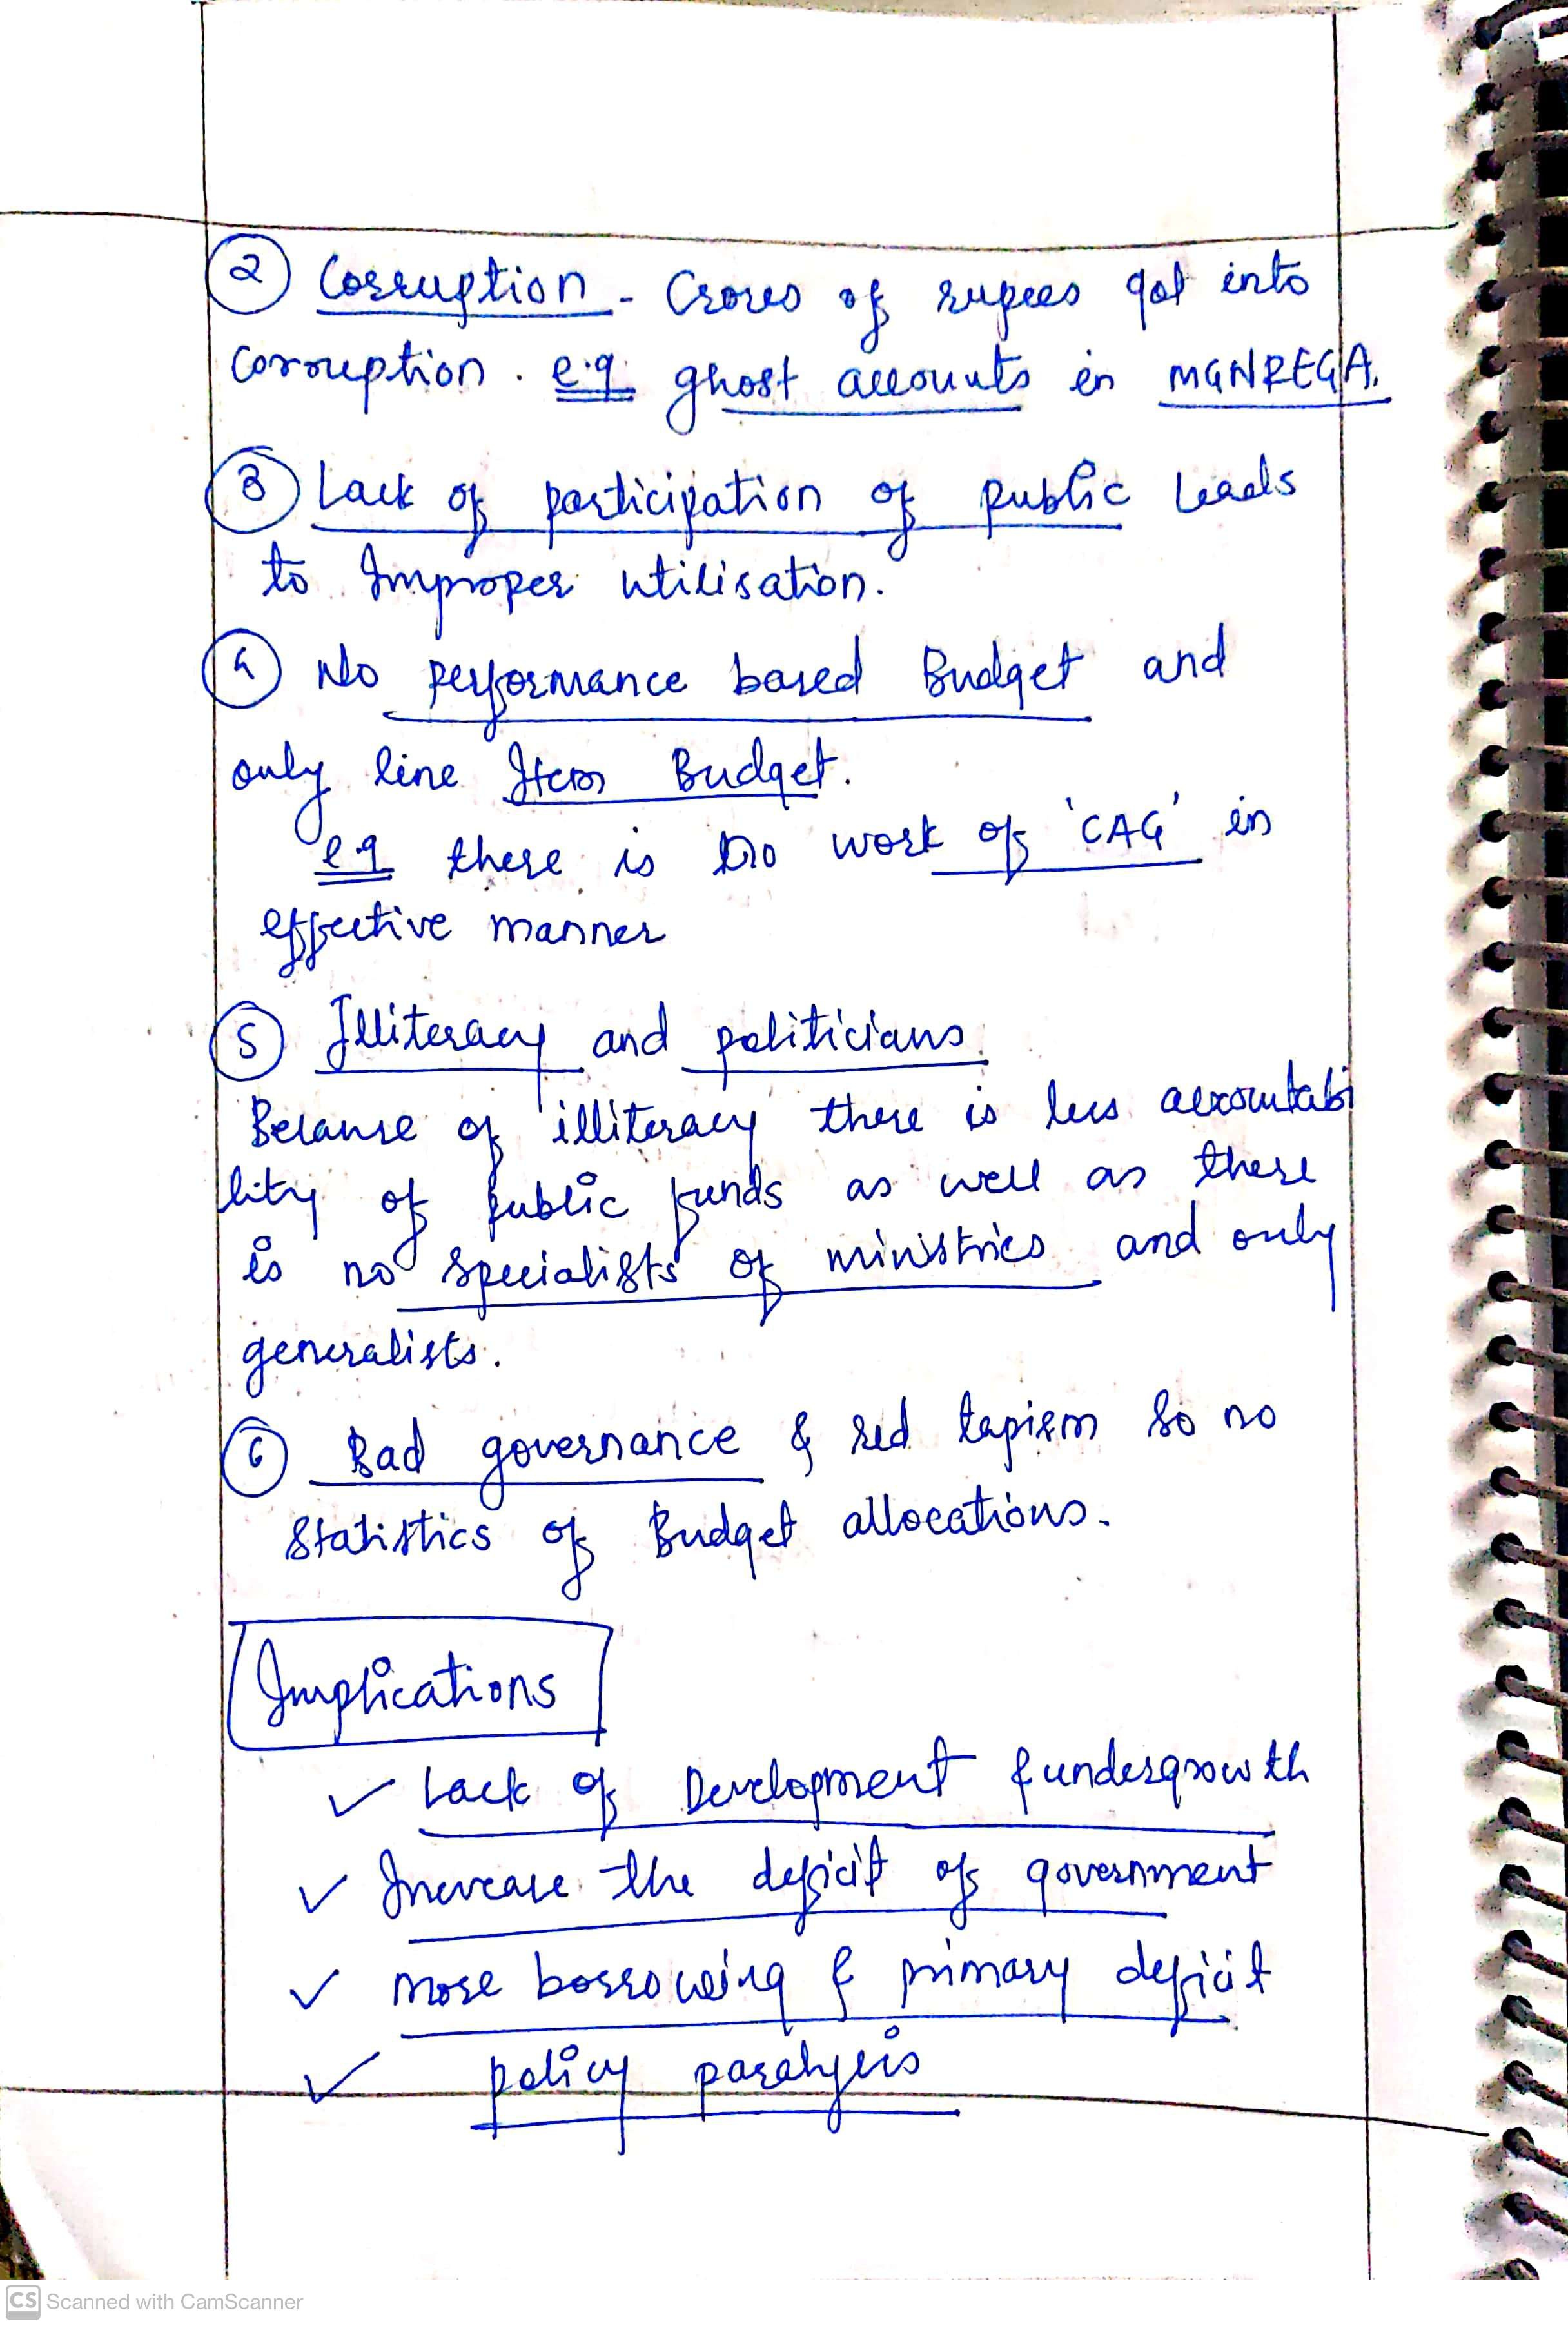 ② Corruption - Crores of rupees got into
corruption. e.g. ghost accounts in MGNREGA.
③ Lack of participation of public leads
to Improper utilisation.
④ No performance based Budget and
only line Item Budget.
e.g there is no work of 'CAG' in
effective manner
⑤ Illiteracy and politicians.
Because of illiteracy there is less accountabi
lity of public funds as well as there
is no specialists of ministries and only
generalists.
⑥ Bad governance & red tapism so no
statistics of Budget allocations.
Implications
✓ Lack of Development & undergrowth
✓ Increase the deficit of government
✓ more borrowing & primary deficit
✓ policy paralysis
CS Scanned with CamScanner